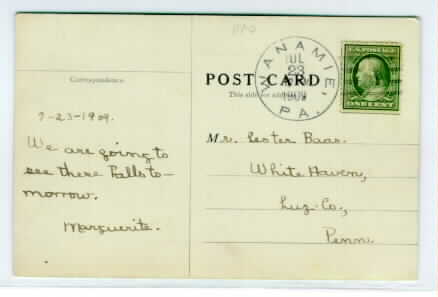 Correspondence
7-23-1909.
We are going to
see these Falls to-
morrow.
Marguerite.
POST CARD
This side for address
WANAMIE,
PA.
JUL
23
1909
U.S. POSTAGE
ONE CENT
Mr. Lester Baas.
White Haven,
Luz. Co.,
Penn.